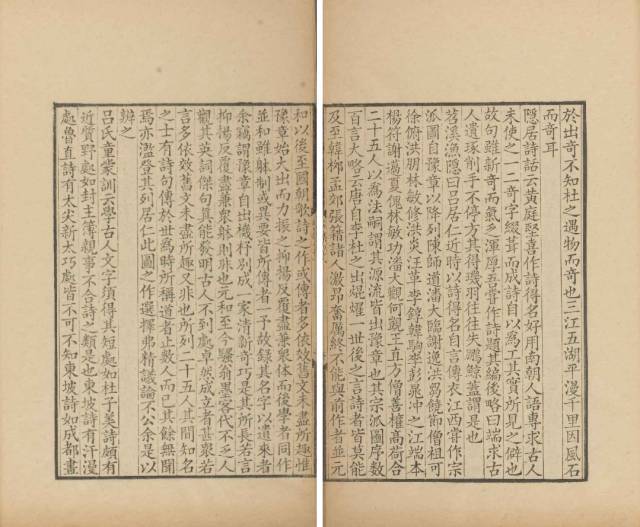 於出奇不知杜之遇物而奇也三江五湖平漫千里因風石
而奇耳
隱居詩話云黃庭堅喜作詩得名好用南朝人語專求古人
未使之一二奇字綴葺而成詩自以為工其實所見之僻也
故句雖新奇而氣乏渾厚吾嘗作詩題其編後略曰端求古
人遺琢削手不停方其得璣羽往往失鵬鯨蓋謂是也
苕溪漁隱曰呂居仁近時以詩得名自言傳衣江西嘗作宗
派圖自豫章以降列陳師道潘大臨謝逸洪芻饒節僧祖可
徐俯洪朋林敏修洪炎汪革李錞韓駒李彭晁冲之江端本
楊符謝薖夏傀林敏功潘大觀何覬王直方僧善權高荷合
二十五人以為法嗣謂其源流皆出豫章也其宗派圖序數
百言大略云唐自李杜之出焜燿一世後之言詩者皆莫能
及至韓柳孟郊張籍諸人激昂奮厲終不能與前作者並元
和以後至國朝歌詩之作或傳者多依效舊文未盡所趣惟
豫章始大出而力振之抑揚反覆盡兼衆體而後學者同作
並和雖躰制或異要皆所傳者一予故錄其名字以遺來者
余竊謂豫章自出機杼別成一家清新奇巧是其所長若言
抑揚反覆盡兼衆躰則非也元和至今騷翁墨客代不乏人
觀其英詞傑句真能發明古人不到處卓然成立者甚衆若
言多依效舊文未盡所趣又非也所列二十五人其間知名
之士有詩句傳於世為時所稱道者止數人而已其餘無聞
焉亦濫登其列居仁此圖之作選擇弗精議論不公余是以
辨之
呂氏童蒙訓云學古人文字須得其短處如杜子美詩頗有
近質野處如封主簿親事不合詩之類是也東坡詩有汗漫
處魯直詩有太尖新太巧處皆不可不知東坡詩如成都畫